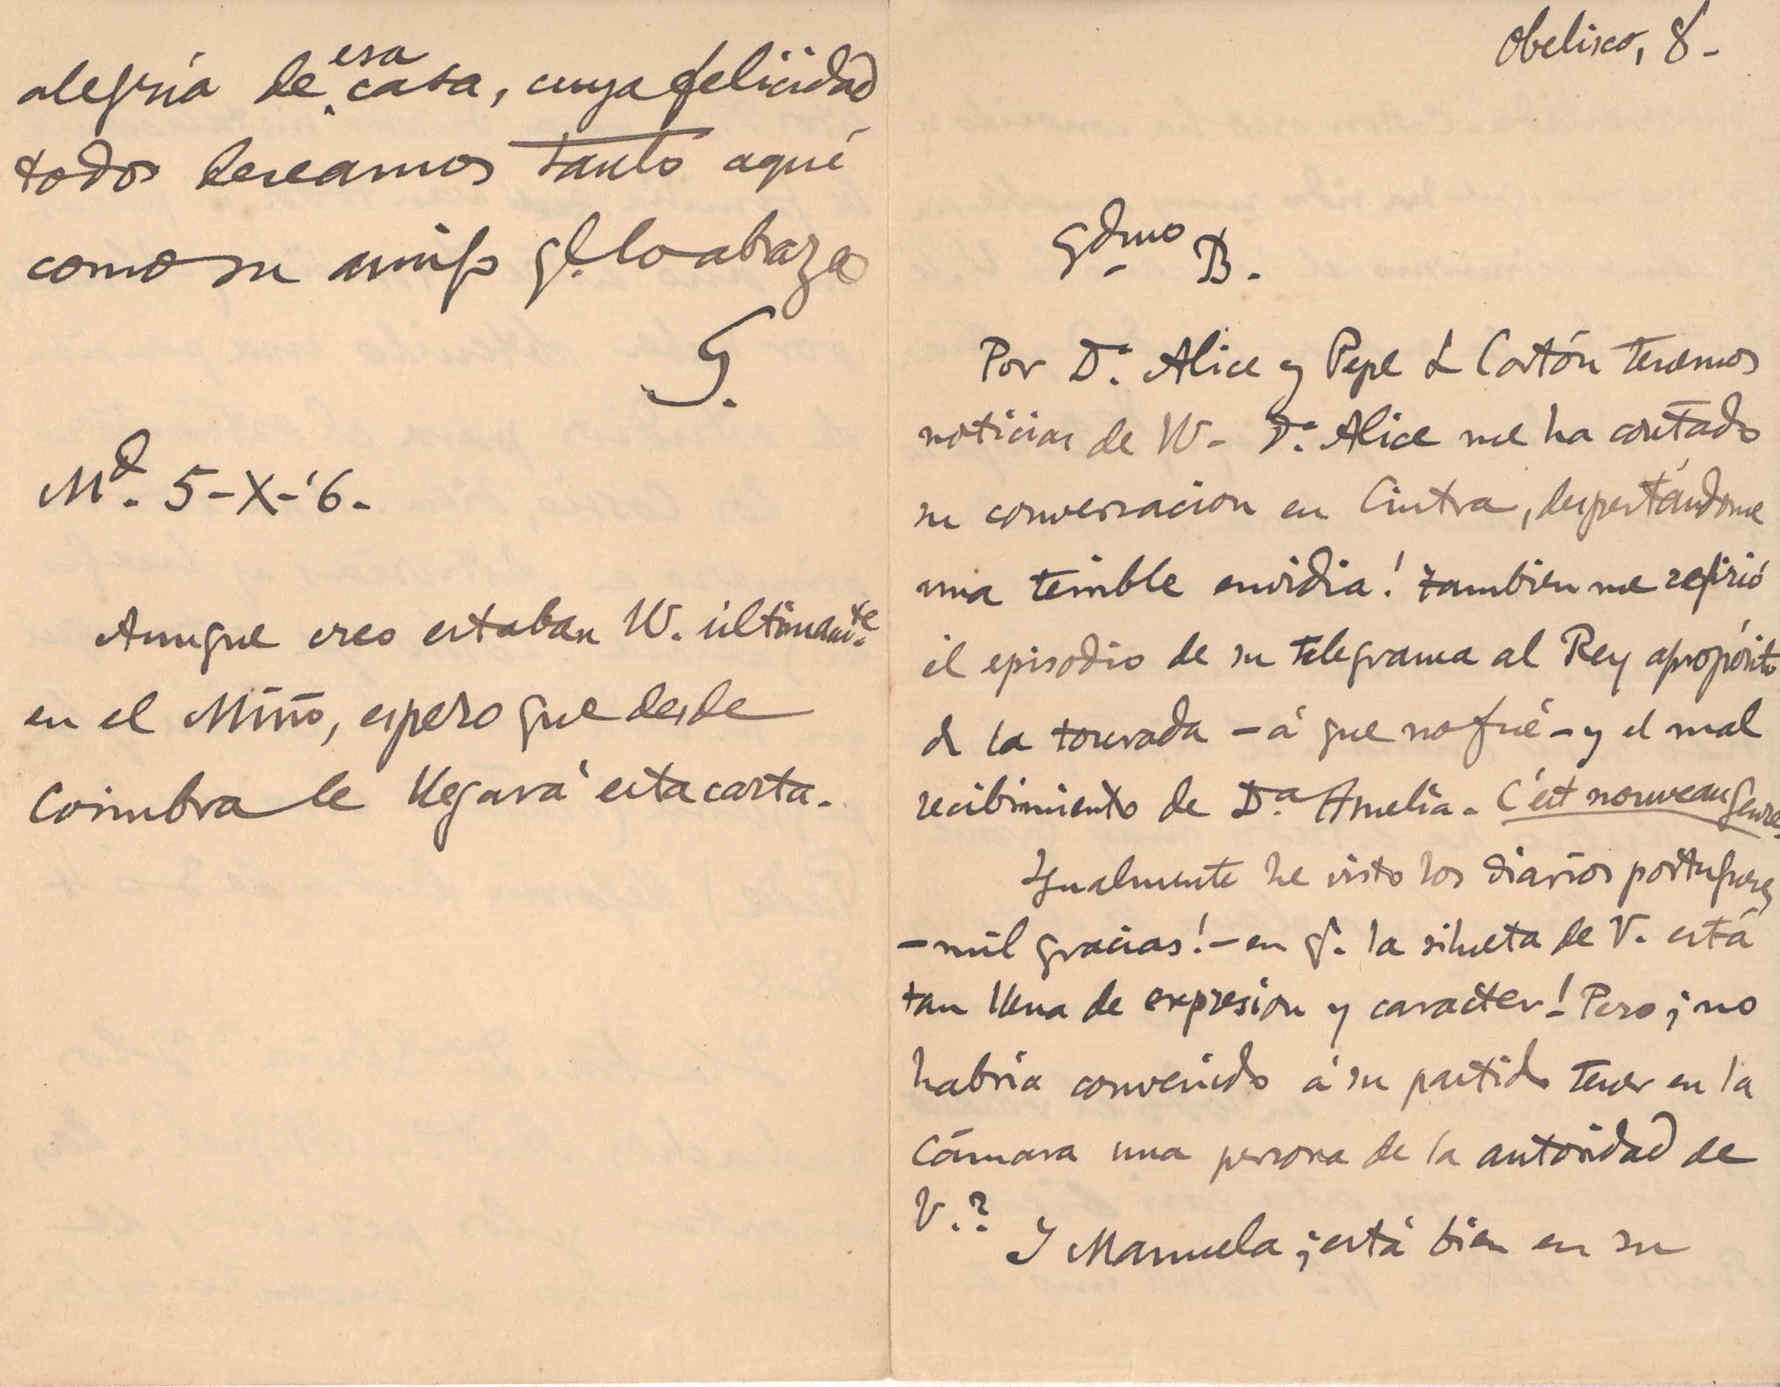 Obelisco, 8.-
Qdmo B.
Por D.ª Alice y Pepe L Cortón tenemos
noticias de W- D.ª Alice me ha contado
su conversacion en Cintra, despertándome
una terrible envidia! tambien me refirió
el episodio de su telegrama al Rey apropósito
de la tourada - á que no fué - y el mal
recibimiento de D.ª Amelia. C'est nouveau genre.
Igualmente he visto los diarios portugueses
- mil gracias! - en q. la silueta de V. está
tan llena de expresion y caracter! Pero ¿no
habria convenido á su partido tener en la
Cámara una persona de la autoridad de
V.?
Y Manuela ¿está bien en su
alegría de esa casa, cuya felicidad
todos deseamos tanto aqui
como su amigo q. lo abraza
G.
Md. 5-X-'6.
Aunque creo estaban W. últimamte.
en el Miño, espero que desde
Coimbra le llegará esta carta.